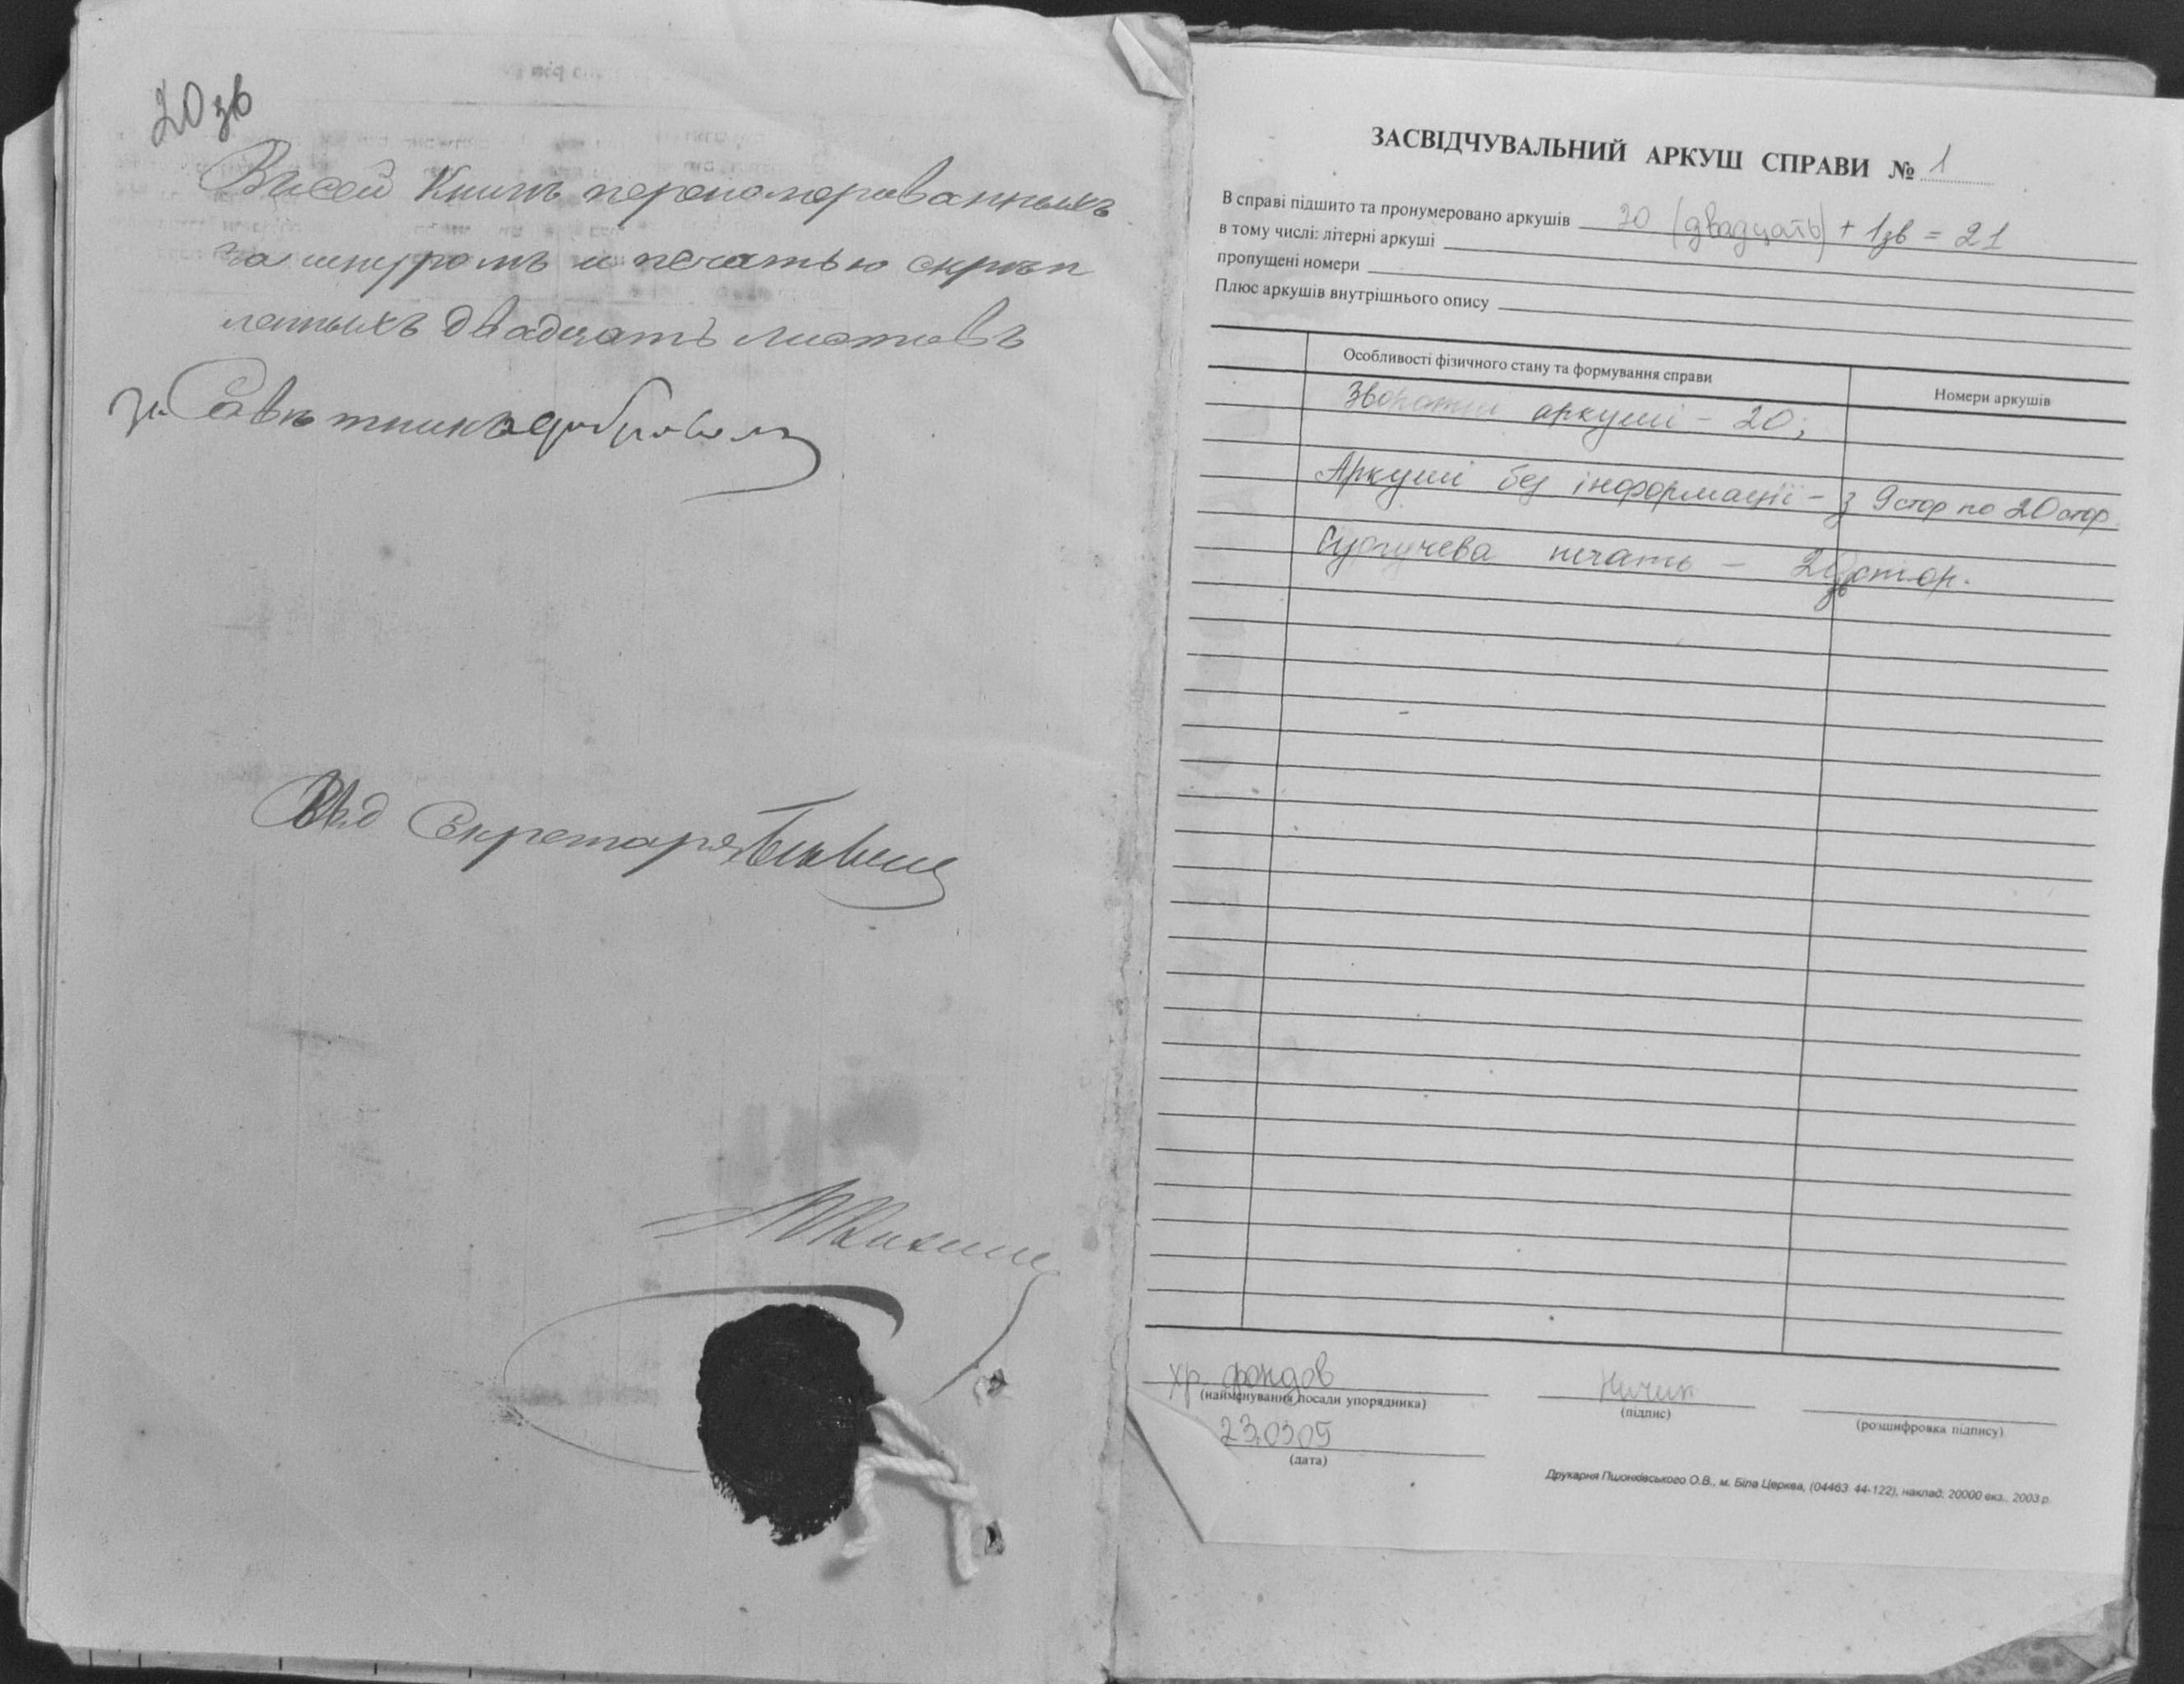 20 зв
Въ сей Книгѣ перенумерованныхъ
за шнуромъ и печатью скрѣп
ленныхъ двадцать листовъ
За Совѣтника
Секретаря
ЗАСВІДЧУВАЛЬНИЙ АРКУШ СПРАВИ № 1
В справі підшито та пронумеровано аркушів 20 (двадцать) + 1зв = 21
в тому числі: літерні аркуші
пропущені номери
Плюс аркушів внутрішнього опису
Особливості фізичного стану та формування справи Номери аркушів
Зворотні аркуші - 20;
Аркуші без інформації - з 9 стор по 20 стор.
Сургучева печать - стор.
хр. фондов
(найменування посади упорядника) (підпис) (розшифровка підпису)
23.03.05
(дата)
Друкарня Пшонківського О.В., м. Біла Церква, (04463 44-122), наклад. 20000 екз., 2003 р.